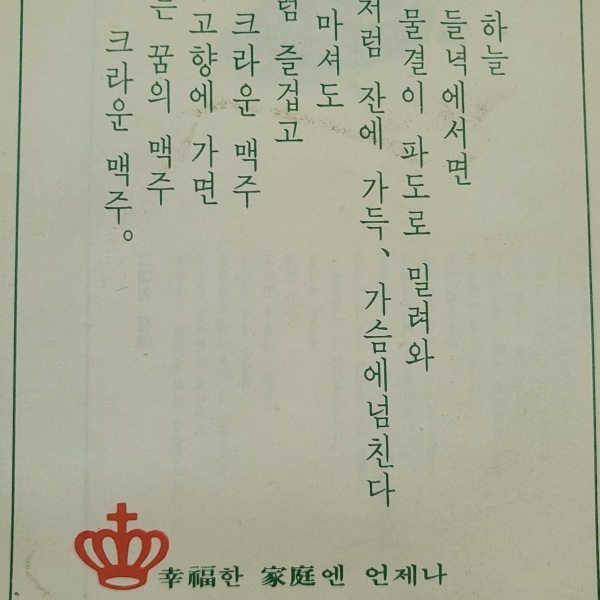 하늘
들녘에서면
물결이 파도로 밀려와
처럼 잔에 가득、가슴에넘친다
마셔도
럼 즐겁고
크라운 맥주
고향에 가면
은 꿈의 맥주
크라운 맥주。
幸福한 家庭엔 언제나